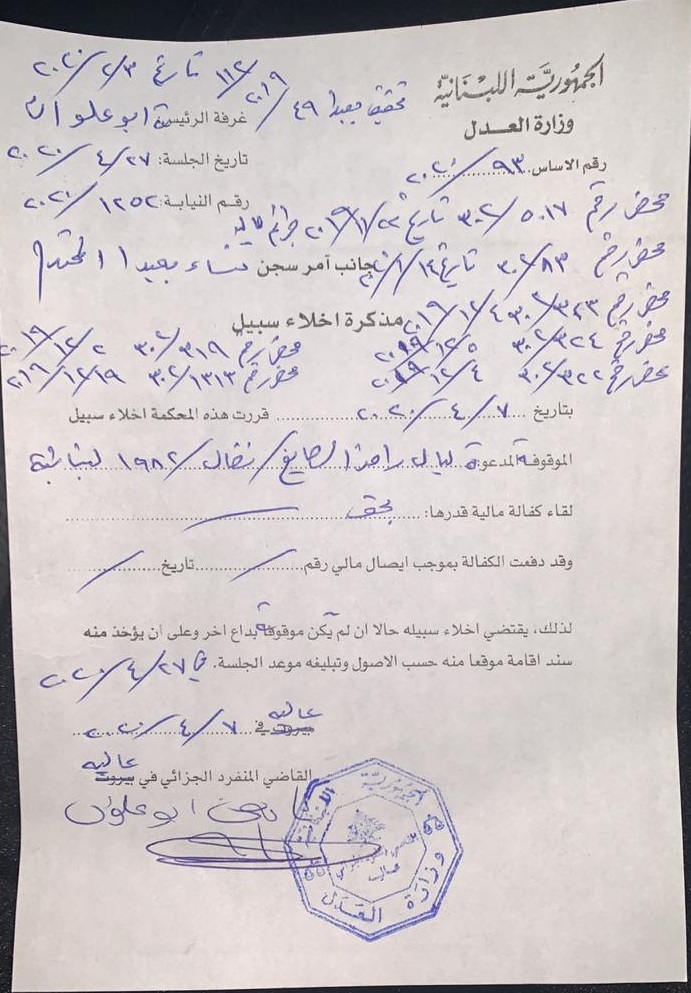 الجمهورية اللبنانية
وزارة العدل
رقم الاساس ٩٣/٢٠٢٠
تحقيق بعبدا ٤٩/٢٠١٩ ١١٢ تاريخ ٣/٢/٢٠٢٠
غرفة الرئيسة ابو علوان
تاريخ الجلسة: ٢٧/٤/٢٠٢٠
رقم النيابة: ١٢٥٢/٢٠٢٠
محضر رقم ٥٠١٧/٣٠٢ تاريخ ٢٢/١/٢٠١٩ جرائم مالية
محضر رقم ٨٣/٣٠٢ تاريخ ١٤/١/
جانب آمر سجن نساء بعبدا المحترم
محضر رقم ٣٤٣/٣٠٢ ٤/١٢/٢٠١٩
مذكرة اخلاء سبيل
محضر رقم ٣٢٤/٣٠٢ ٥/١٢/٢٠١٩ محضر رقم ٣١٩/٣٠٢ ٢/١٢/٢٠١٩
محضر رقم ٣٢٢/٣٠٢ ٤/١٢/٢٠١٩ محضر رقم ١٣١٣/٣٠٢ ١٩/١٢/٢٠١٩
بتاريخ ٧/٤/٢٠٢٠ قررت هذه المحكمة اخلاء سبيل
الموقوفة المدعوة ليال رامز الصايغ/نضال/١٩٨٢ لبنانية
لقاء كفالة مالية قدرها: بحق
وقد دفعت الكفالة بموجب ايصال مالي رقم / تاريخ /
لذلك، يقتضي اخلاء سبيله حالا ان لم تكن موقوفة بداع اخر وعلى ان يؤخذ منه
سند اقامة موقعا منه حسب الاصول وتبليغه موعد الجلسة. في ٢٧/٤/٢٠٢٠
عاليه
بيروت في ٧/٤/٢٠٢٠
عاليه
القاضي المنفرد الجزائي في بيروت
ابو علوان
الجمهورية اللبنانية
وزارة العدل
القاضي المنفرد الجزائي
عاليه